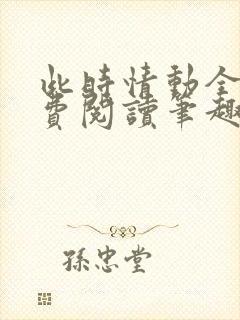 此時情動全
費閱讀筆趣
孫忠堂